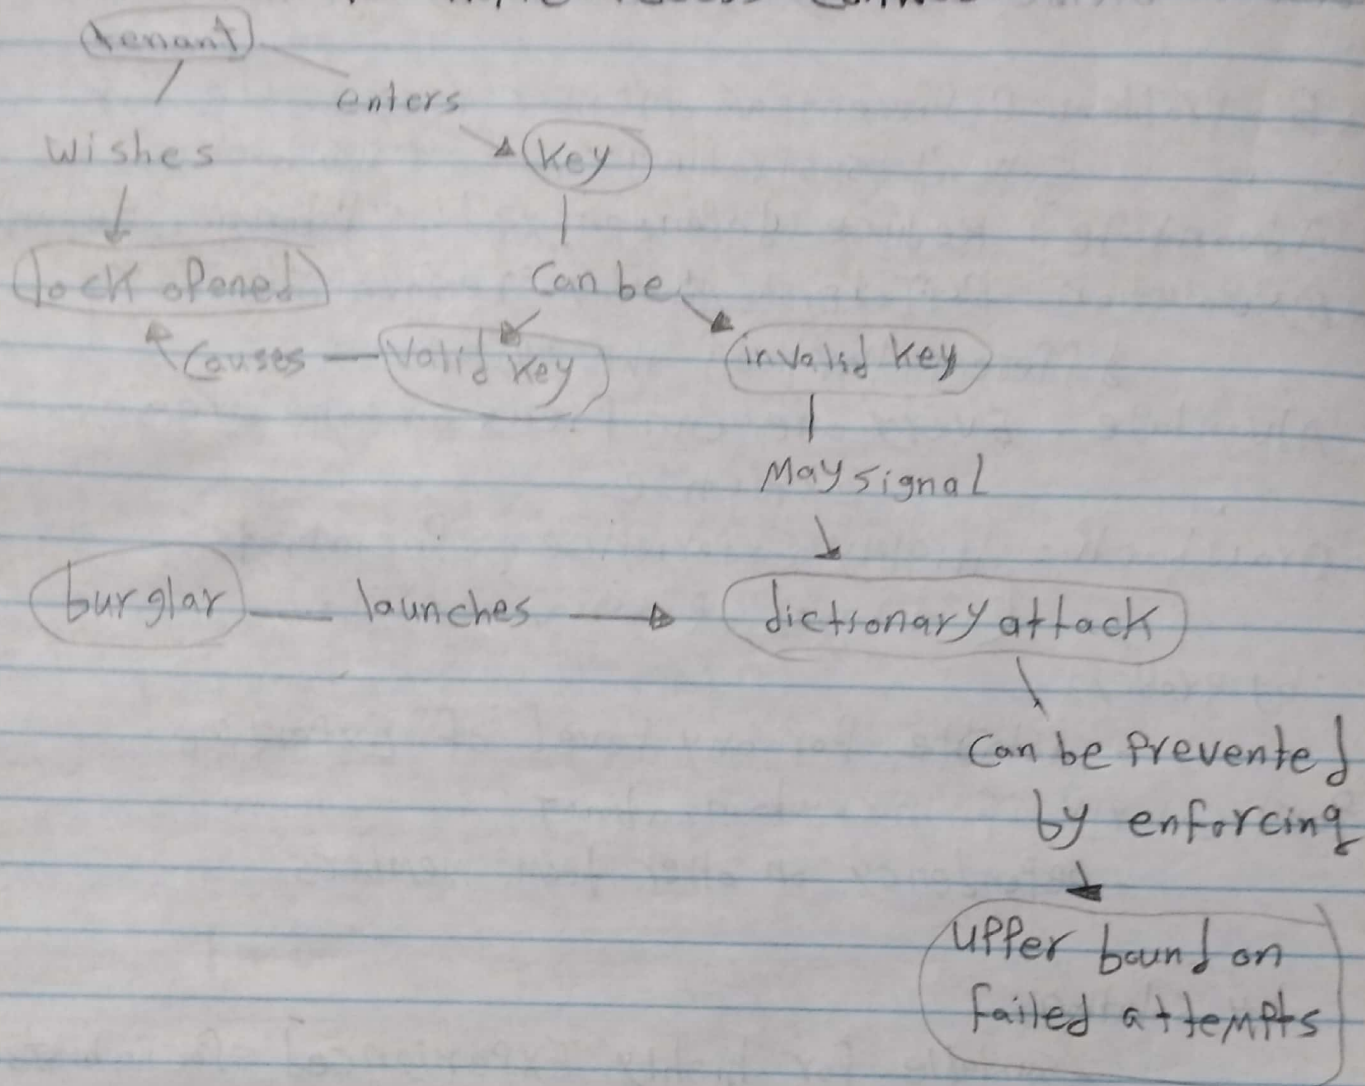 tenant
enters
wishes
key
lock opened
can be
causes
valid key
invalid key
may signal
burglar
launches
dictionary attack
can be prevented
by enforcing
upper bound on
failed attempts